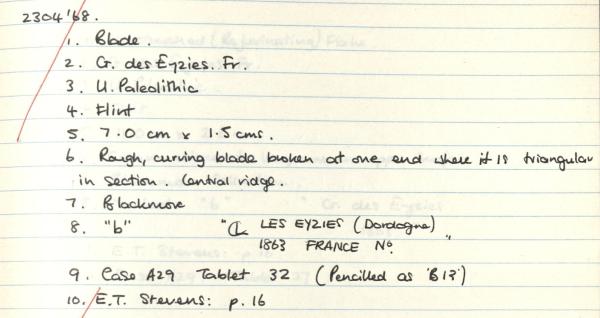 2304'68.
1. Blade.
2. Cr. des Eyzies. Fr.
3. U. Paleolithic
4. Flint
5. 7.0 cm x 1.5 cms.
6. Rough, curving blade broken at one end where it is triangular
in section. Central ridge.
7. Blackmore
8. "b" " LES EYZIES (Dordogne)
1863 FRANCE No. "
9. Case A29 Tablet 32 (Pencilled as 'B13')
10. E.T. Stevens: p. 16